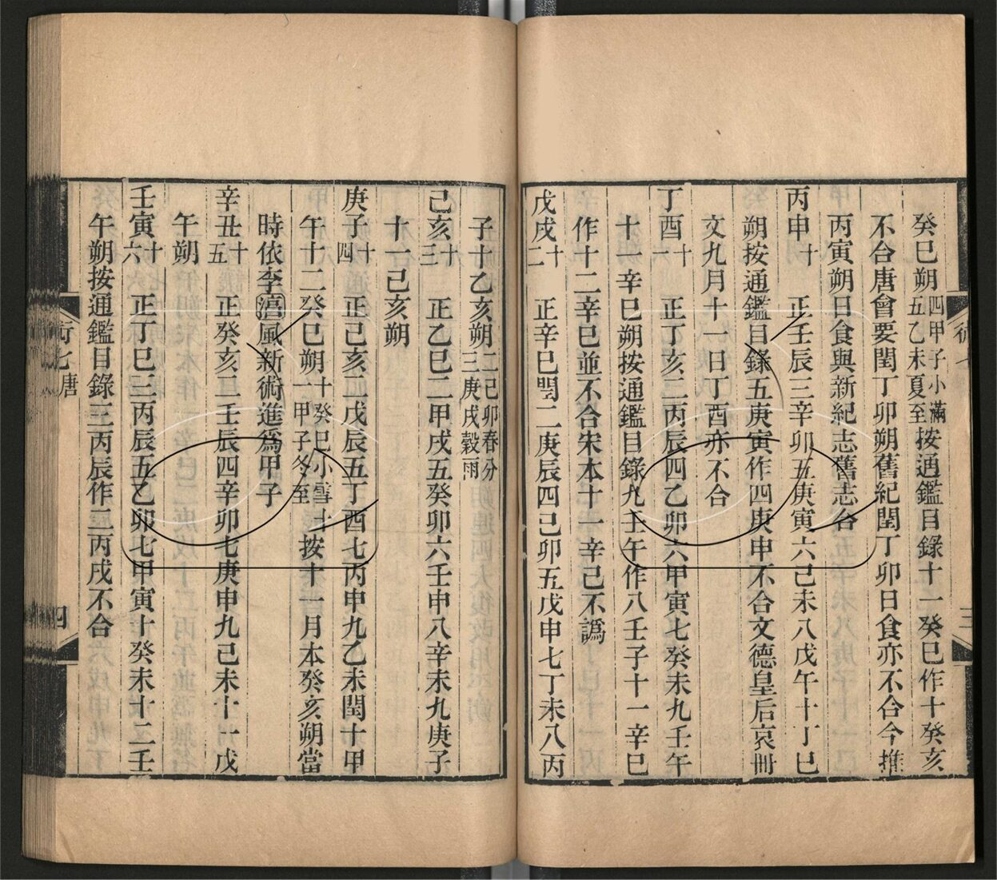 癸巳朔四甲子小滿五乙未夏至按通鑑目錄十一癸巳作十癸亥
不合唐會要閏丁卯朔舊紀閏丁卯日食亦不合今推
丙寅朔日食與新紀志舊志合
丙申十 正壬辰三辛卯五庚寅六己未八戊午十丁巳
朔按通鑑目錄五庚寅作四庚申不合文德皇后哀冊
文九月十一日丁酉亦不合
丁酉十一 正丁亥二丙辰四乙卯六甲寅七癸未九壬午
十一辛巳朔按通鑑目錄九壬午作八壬子十一辛巳
作十二辛巳並不合宋本十一辛己不譌
戊戌十二 正辛巳閏二庚辰四己卯五戊申七丁未八丙
子十乙亥朔二己卯春分三庚戌穀雨
己亥十三 正乙巳二甲戌五癸卯六壬申八辛未九庚子
十一己亥朔
庚子十四 正己亥二戊辰五丁酉七丙申九乙未閏十甲
午十二癸巳朔十癸巳小雪十一甲子冬至按十一月本癸亥朔當
時依李淳風新術進爲甲子
辛丑十五 正癸亥二壬辰四辛卯七庚申九己未十一戊
午朔
壬寅十六 正丁巳三丙辰五乙卯七甲寅十癸未十二壬
午朔按通鑑目錄三丙辰作二丙戌不合
術七 唐
四